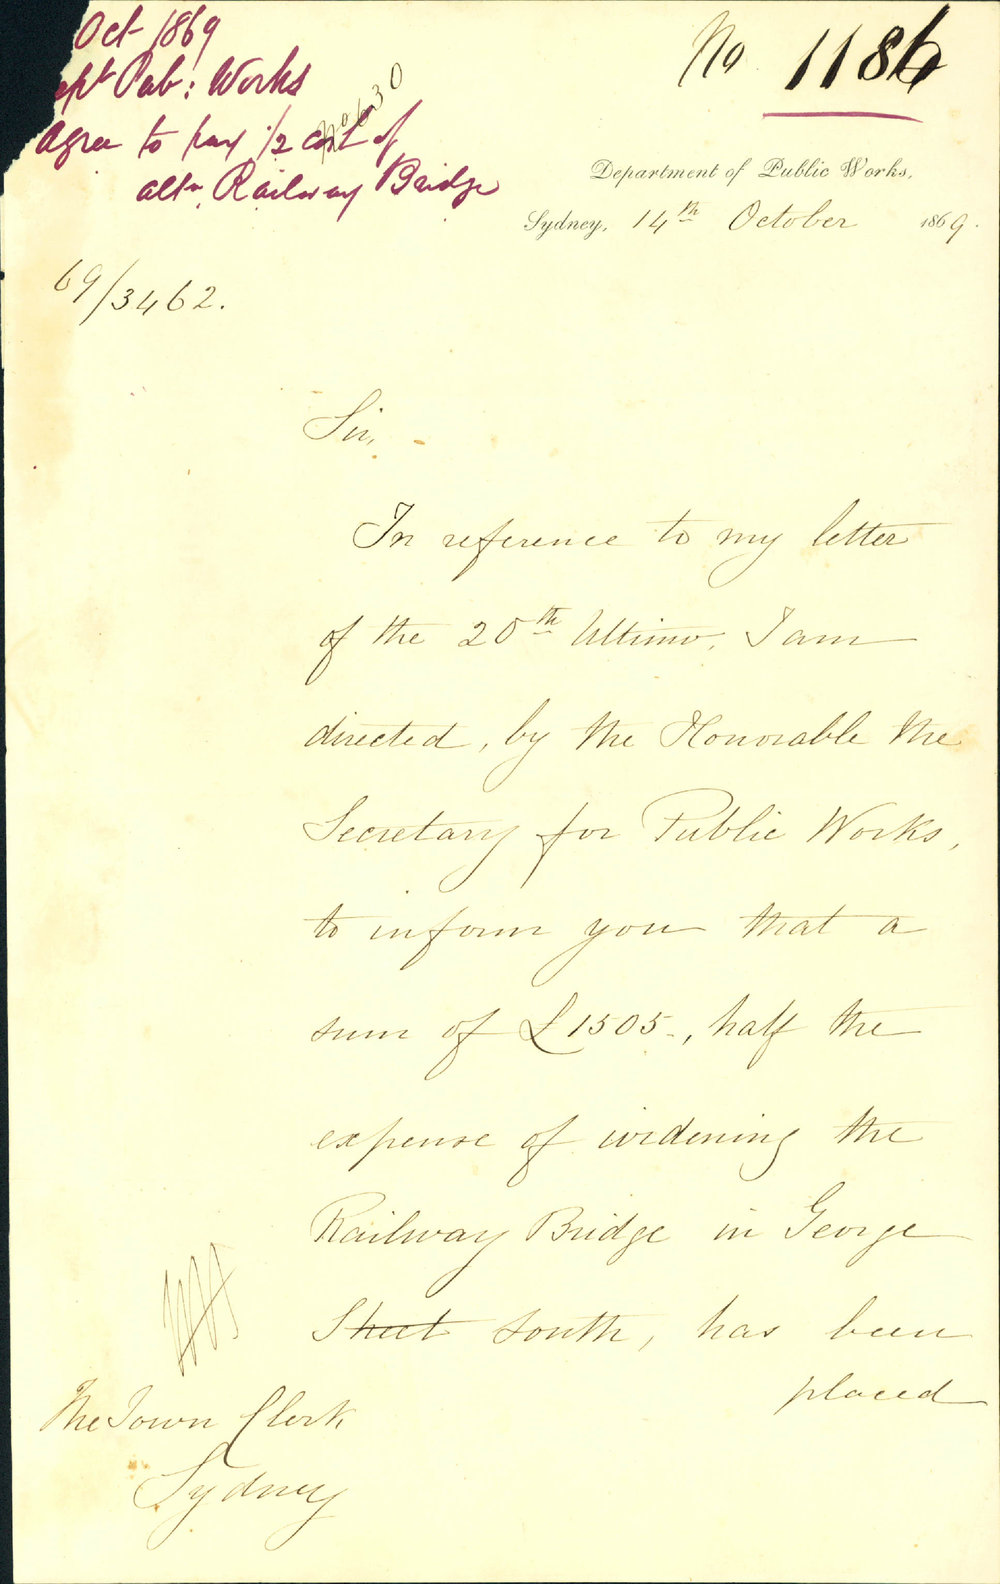 Oct 1869
ept Pub: Works
Agree to pay 1/2 cost of
altn. Railway Bridge
No 630
No 1186
Department of Public Works,
Sydney, 14th October 1869.
69/3462.
Sir,
In reference to my letter
of the 20th Ultimo, I am
directed, by the Honorable the
Secretary for Public Works,
to inform you that a
sum of £1505-, half the
expense of widening the
Railway Bridge in George
Street South, has been
placed
The Town Clerk
Sydney